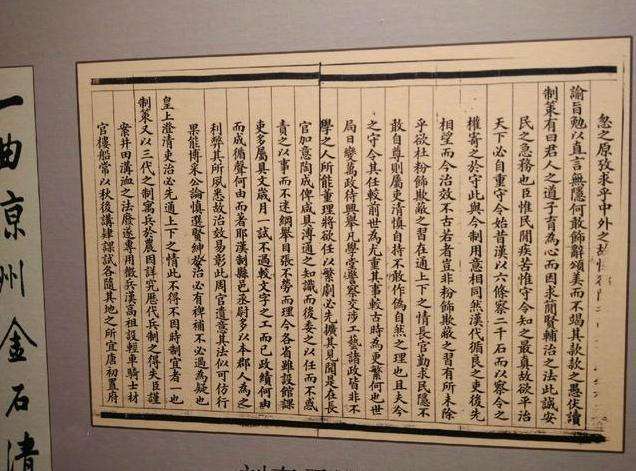 忽之原攷求乎中外之故
諭旨勉以直言無隱何敢飾辭頌美而不竭其款款之愚伏讀
制策有曰君人之道子育為心而因求簡賢輔治之法此誠安
民之急務也臣惟民閒疾苦惟守令知之最真故欲平治
天下必自重守令始昔漢以六條察二千石而以察令之
權寄之於守此與今制用意相同然漢代循良之吏後先
相望而今治效不古若者豈非粉飾欺蔽之習有所未除
乎欲杜粉飾欺蔽之習在通上下之情長官勤求民隱不
敢自尊則屬吏清慎自持不敢作偽自然之理也且夫今
之守令其任較前世為尤重其事較古時為更繁何也世
局日變萬政待興舉凡學堂警察交涉工藝諸政皆非不
學之人所能董理將欲任以繁劇必先擴其見聞是在長
官加意陶成俾咸具溥通之知識而後委之以任而不惑
責之以事而不迷綱舉目張不勞而理今各省雖設館課
吏多屬具文歲月一試不過較文字之工而已政績何由
而成循聲何由而著耶漢制縣邑丞尉多以本郡人為之
利弊其所夙悉故治效易彰此周官遺意其法似可仿行
果能博采公論慎選賢紳贊治必有裨補不必過為疑也
皇上澄清吏治必先通上下之情此不得不因時制宜者一也
制策又以三代之制寓兵於農因詳究歷代兵制之得失臣謹
案井田溝洫之法廢遂專用徵兵漢高祖設輕車騎士材
官樓船常以秋後講肄課試各隨其地之所宜唐初置府
曲京州金石清